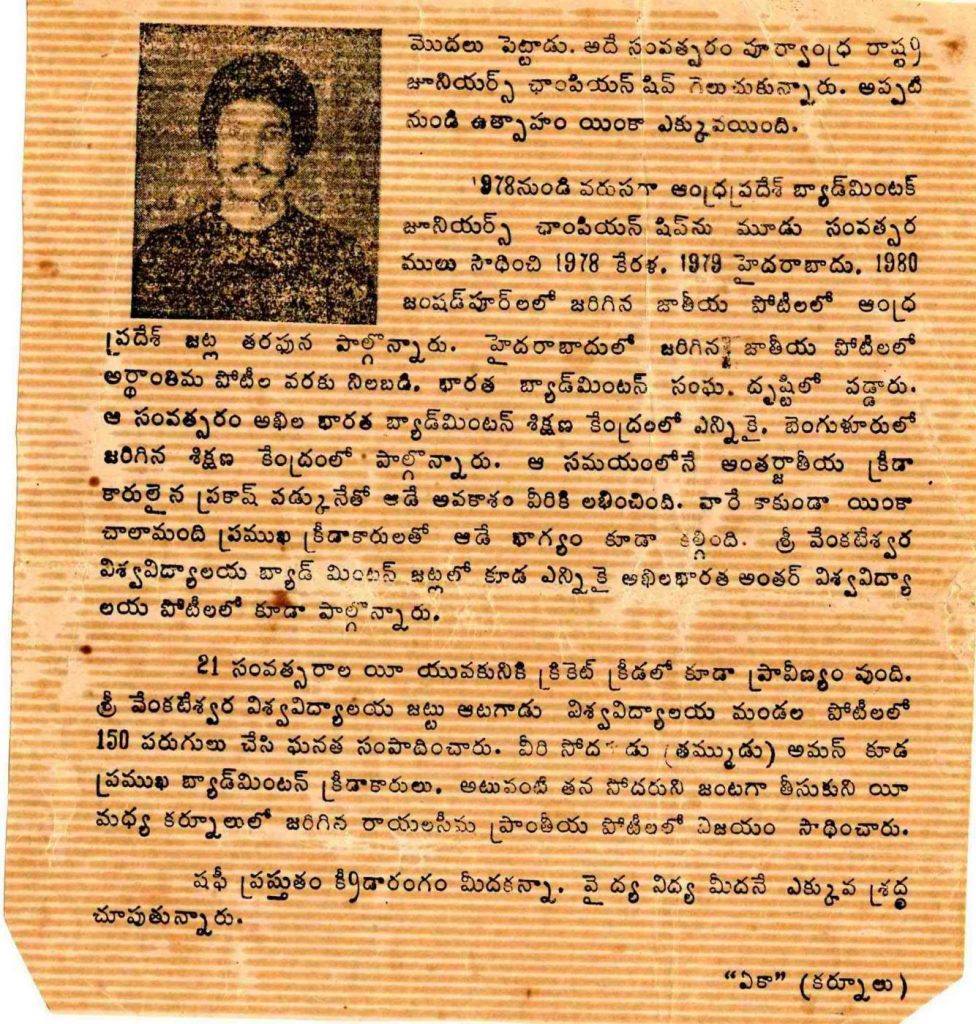 మొదలు పెట్టాడు. అదే సంవత్సరం పూర్వాంధ్ర రాష్ట్ర
జూనియర్స్ ఛాంపియన్ షిప్ గెలుచుకున్నారు. అప్పటి
నుండి ఉత్సాహం యింకా ఎక్కువయింది.
1978నుండి వరుసగా ఆంధ్రప్రదేశ్ బ్యాడ్‌మింటక్
జూనియర్స్ ఛాంపియన్ షిప్‌ను మూడు సంవత్సర
ములు సాధించి 1978 కేరళ, 1979 హైదరాబాదు, 1980
జంషడ్‌పూర్‌లలో జరిగిన జాతీయ పోటీలలో ఆంధ్ర
ప్రదేశ్ జట్ల తరఫున పాల్గొన్నారు. హైదరాబాదులో జరిగిన జాతీయ పోటీలలో
అర్థాంతిమ పోటీల వరకు నిలబడి, భారత బ్యాడ్‌మింటన్ సంఘ, దృష్టిలో పడ్డారు.
ఆ సంవత్సరం అఖిల భారత బ్యాడ్‌మింటన్ శిక్షణ కేంద్రంలో ఎన్నికై, బెంగుళూరులో
జరిగిన శిక్షణ కేంద్రంలో పాల్గొన్నారు. ఆ సమయంలోనే అంతర్జాతీయ క్రీడా
కారులైన ప్రకాష్ వడ్కునేతో ఆడే అవకాశం వీరికి లభించింది. వారే కాకుండా యింకా
చాలామంది ప్రముఖ క్రీడాకారులతో ఆడే భాగ్యం కూడా కల్గింది. శ్రీ వేంకటేశ్వర
విశ్వవిద్యాలయ బ్యాడ్ మింటన్ జట్లలో కూడ ఎన్నికై అఖిలభారత అంతర్ విశ్వవిద్యా
లయ పోటీలలో కూడా పాల్గొన్నారు.
21 సంవత్సరాల యీ యువకునికి క్రికెట్ క్రీడలో కూడా ప్రావీణ్యం వుంది.
శ్రీ వేంకటేశ్వర విశ్వవిద్యాలయ జట్టు ఆటగాడు విశ్వవిద్యాలయ మండల పోటీలలో
150 పరుగులు చేసి ఘనత సంపాదించారు. వీరి సోదరుడు (తమ్ముడు) అమన్ కూడ
ప్రముఖ బ్యాడ్‌మింటన్ క్రీడాకారులు. అటువంటి తన సోదరుని జంటగా తీసుకుని యీ
మధ్య కర్నూలులో జరిగిన రాయలసీమ ప్రాంతీయ పోటీలలో విజయం సాధించారు.
షఫీ ప్రస్తుతం క్రీడారంగం మీదకన్నా. వైద్య నిద్య మీదనే ఎక్కువ శ్రద్ధ
చూపుతున్నారు.
“ఏకా” (కర్నూలు)